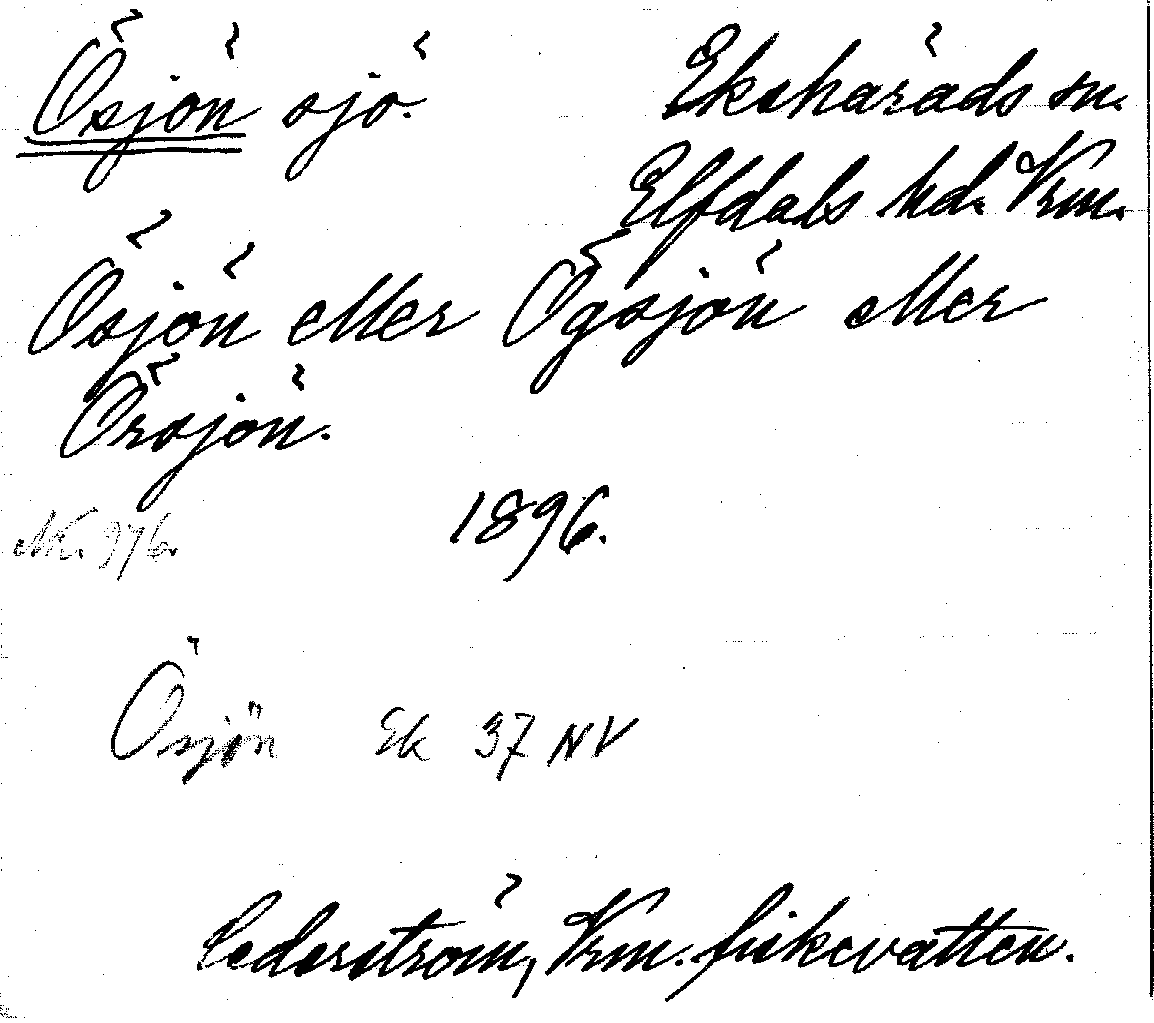 Ösjön sjö. Ekshärads sn.
Elfdals hd. Vrm.
Ösjön eller Ögsjön eller
Örsjön.
Nr. 976. 1896.
Ösjön Ek 37 NV
Cederström, Vrm. fiskevatten.